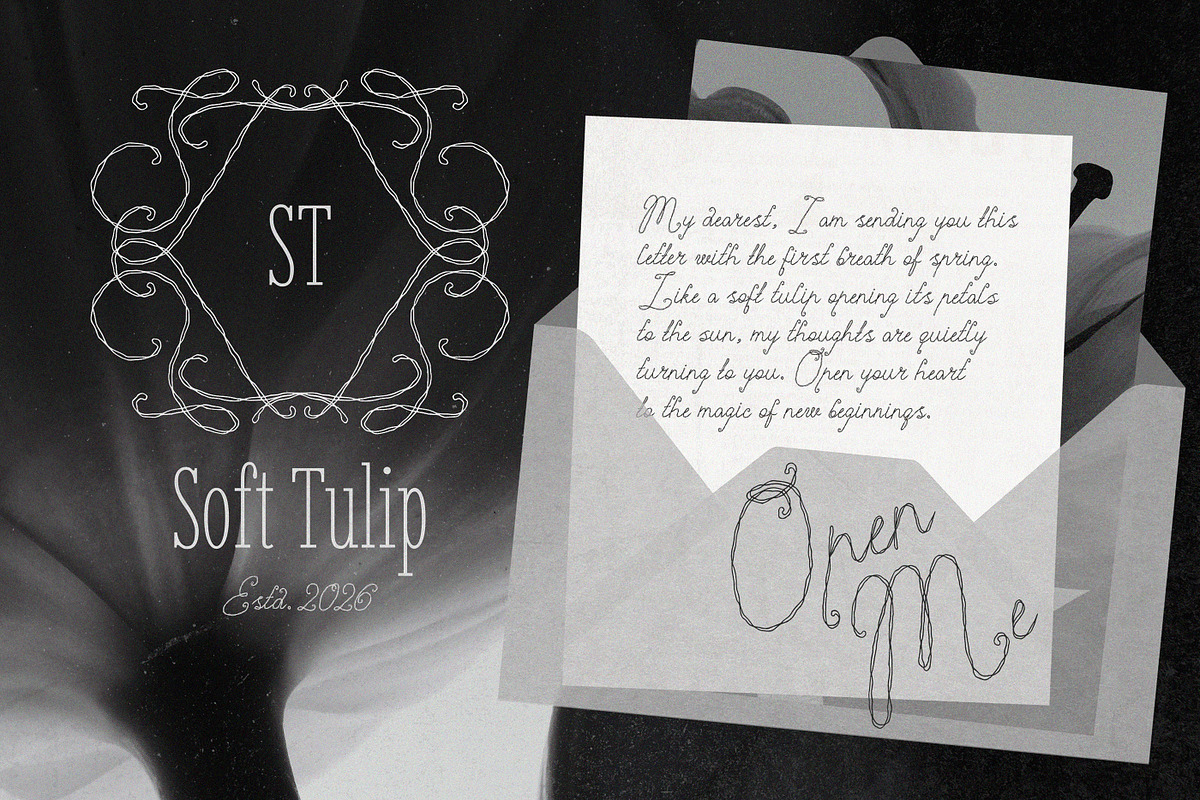 ST
Soft Tulip
Estd. 2026
My dearest, I am sending you this
letter with the first breath of spring.
Like a soft tulip opening its petals
to the sun, my thoughts are quietly
turning to you. Open your heart
to the magic of new beginnings.
Open
Me